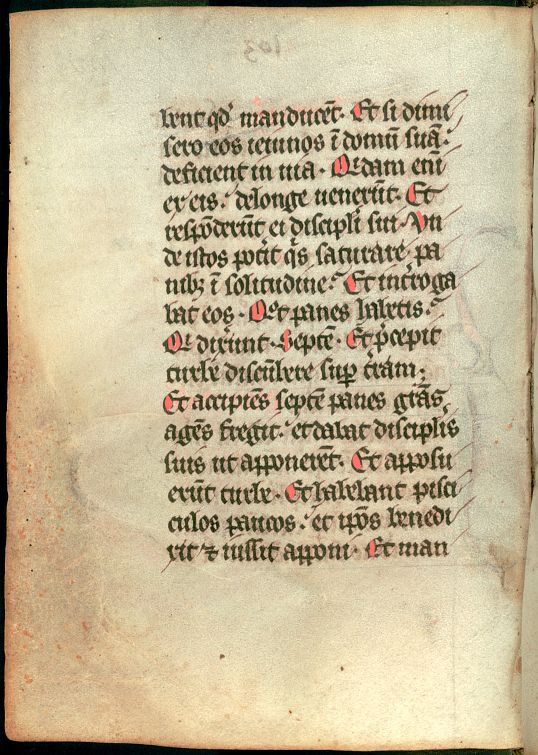 bent qd̕ manducēt. Et si dimi
sero eos ieiunos ī domū suā:
deficient in uia. Q̕dam enī
ex eis: de longe uenerūt. Et
respōderūt ei discipl̕i sui. Vn
de istos pot̕it q̕s saturare pa
nibꝫ ī solitudine: Et int̕roga
bat eos. Q̕ot panes habetis:
Q̕ dix̕unt. Septē. Et p̕cepit
turbe discūbere suꝑ t̕ram;
Et accipiēs septē panes grās
agēs fregit: et dabat discipl̕is
suis ut apponerēt. Et apposu
erūt turbe. Et habebant pisci
culos paucos: et ip̄os benedi
xit ⁊ iussit apponi. Et man